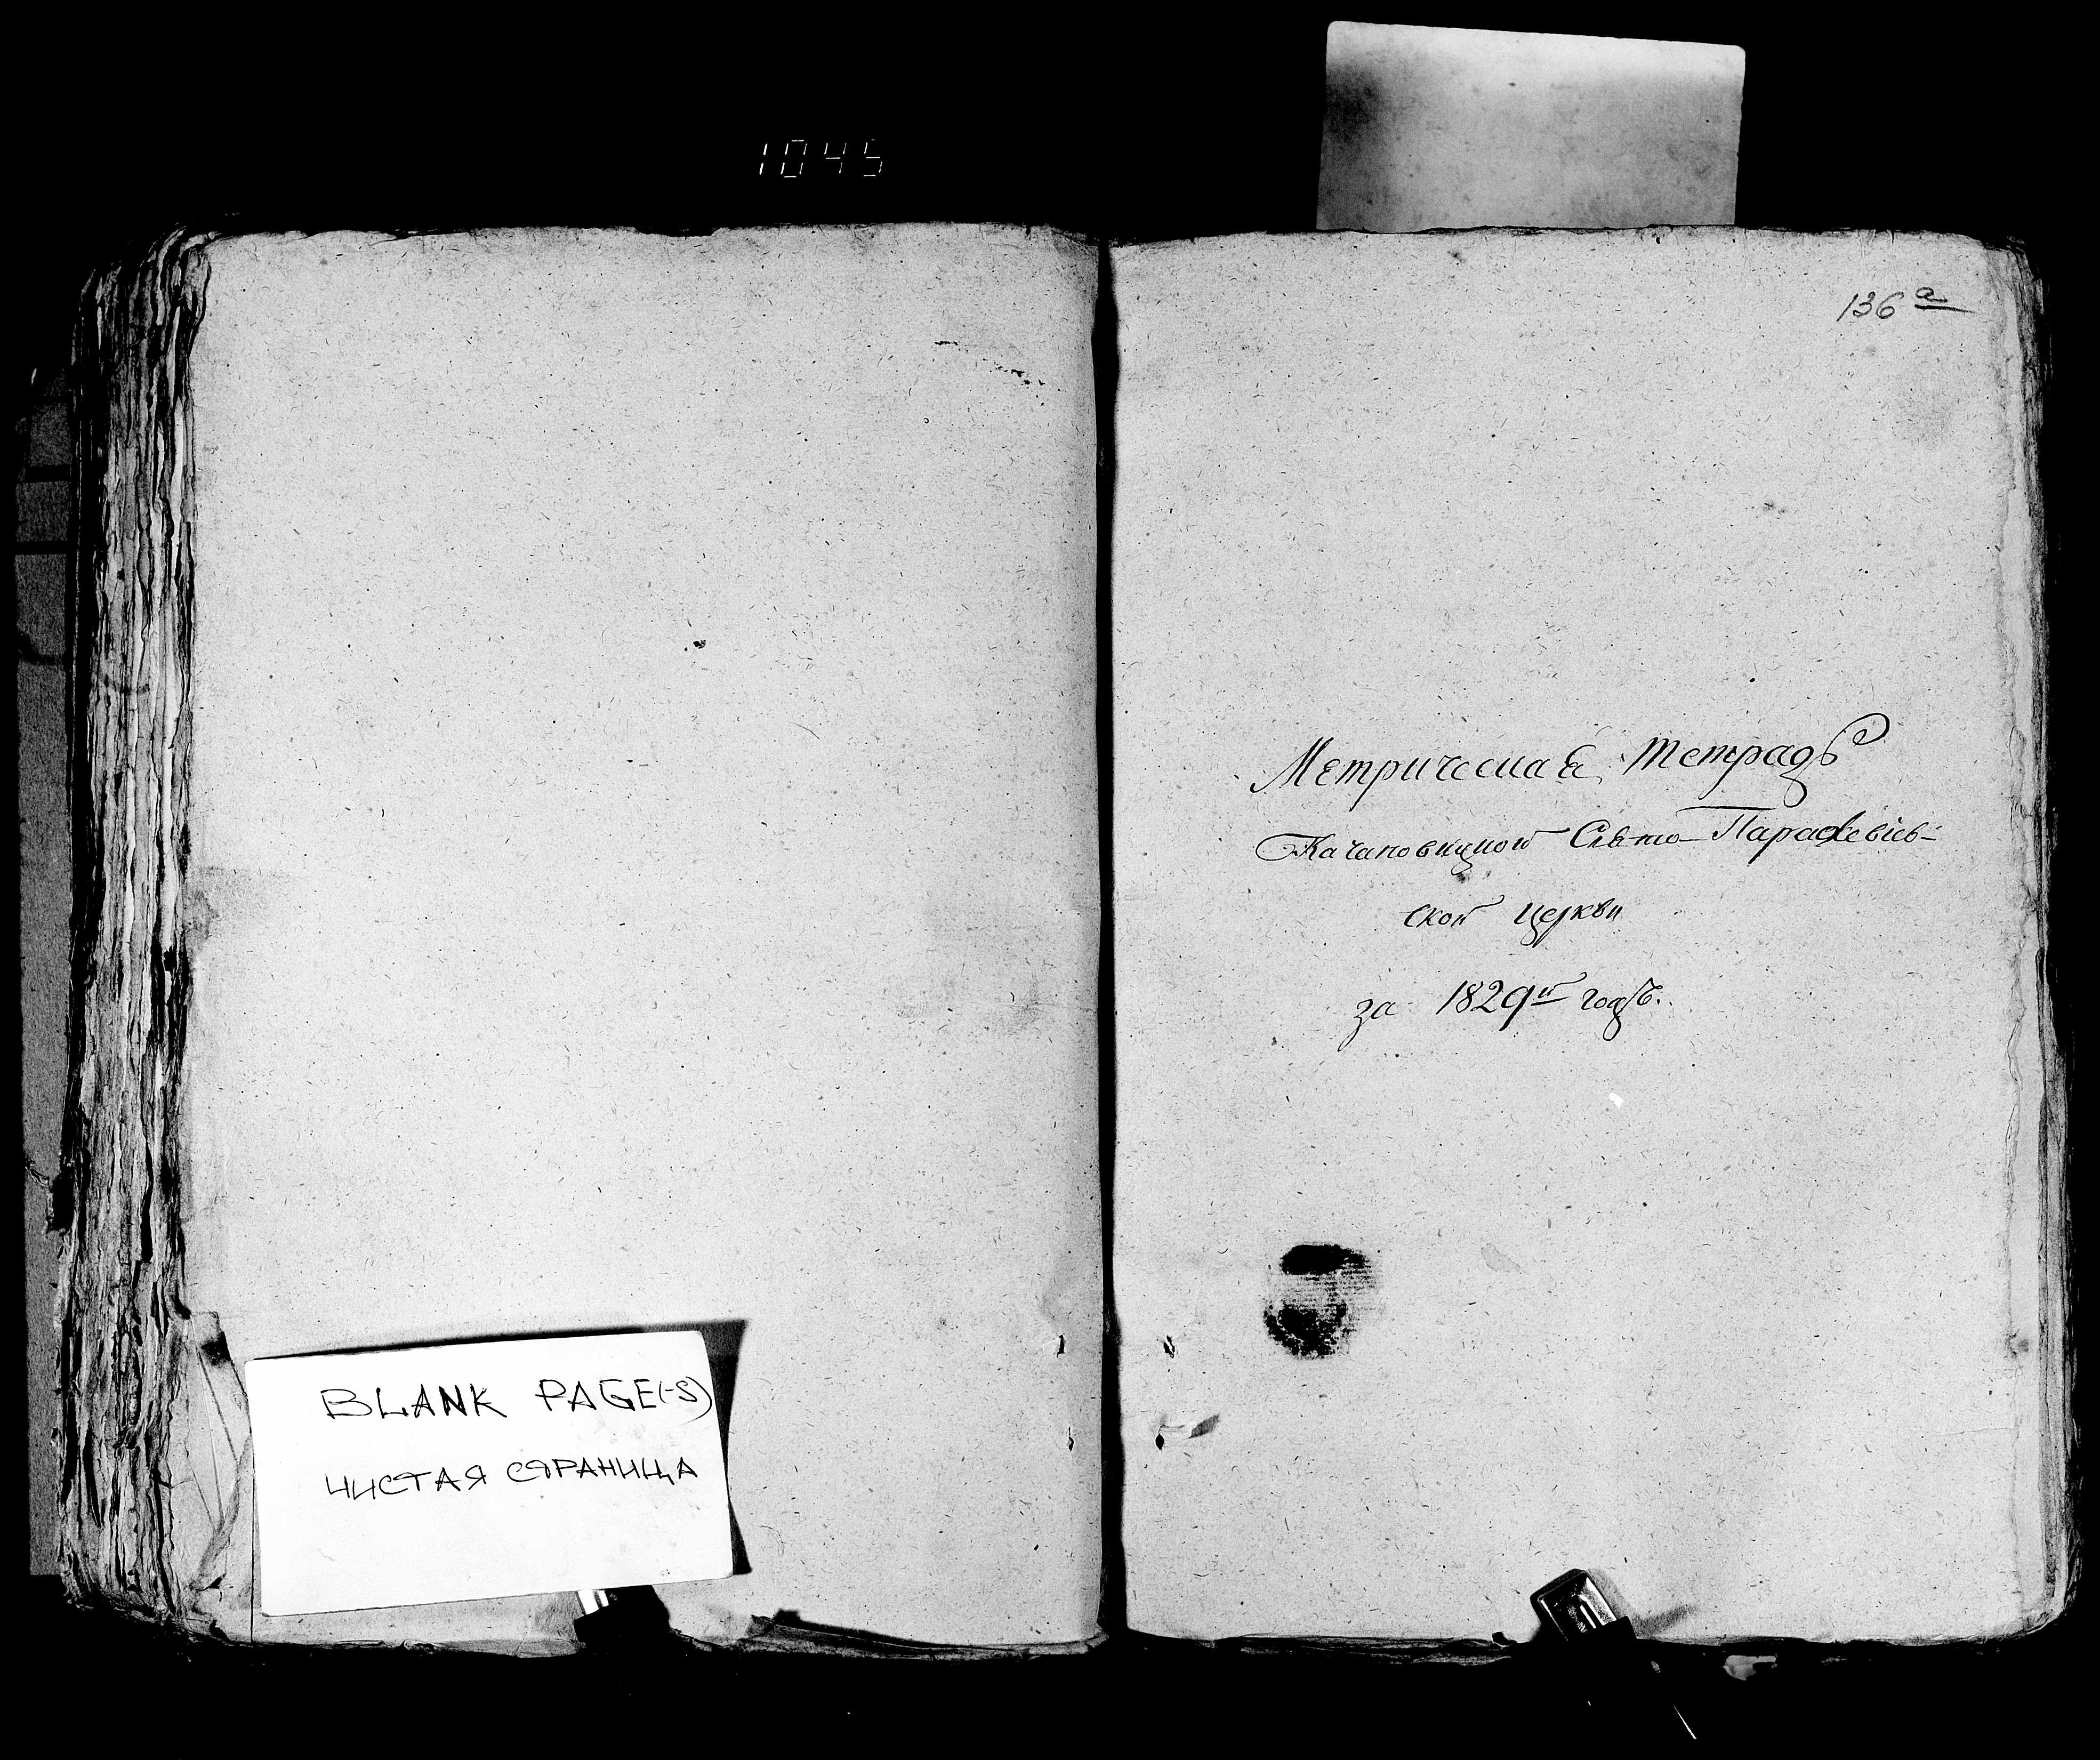 1045
BLANK PAGE(-S)
ЧИСТАЯ СТРАНИЦА
136 а
Метрическая Тетрадь
Качановицкой Свято-Параскевіев-
ской Церкви
за 1829й годъ.